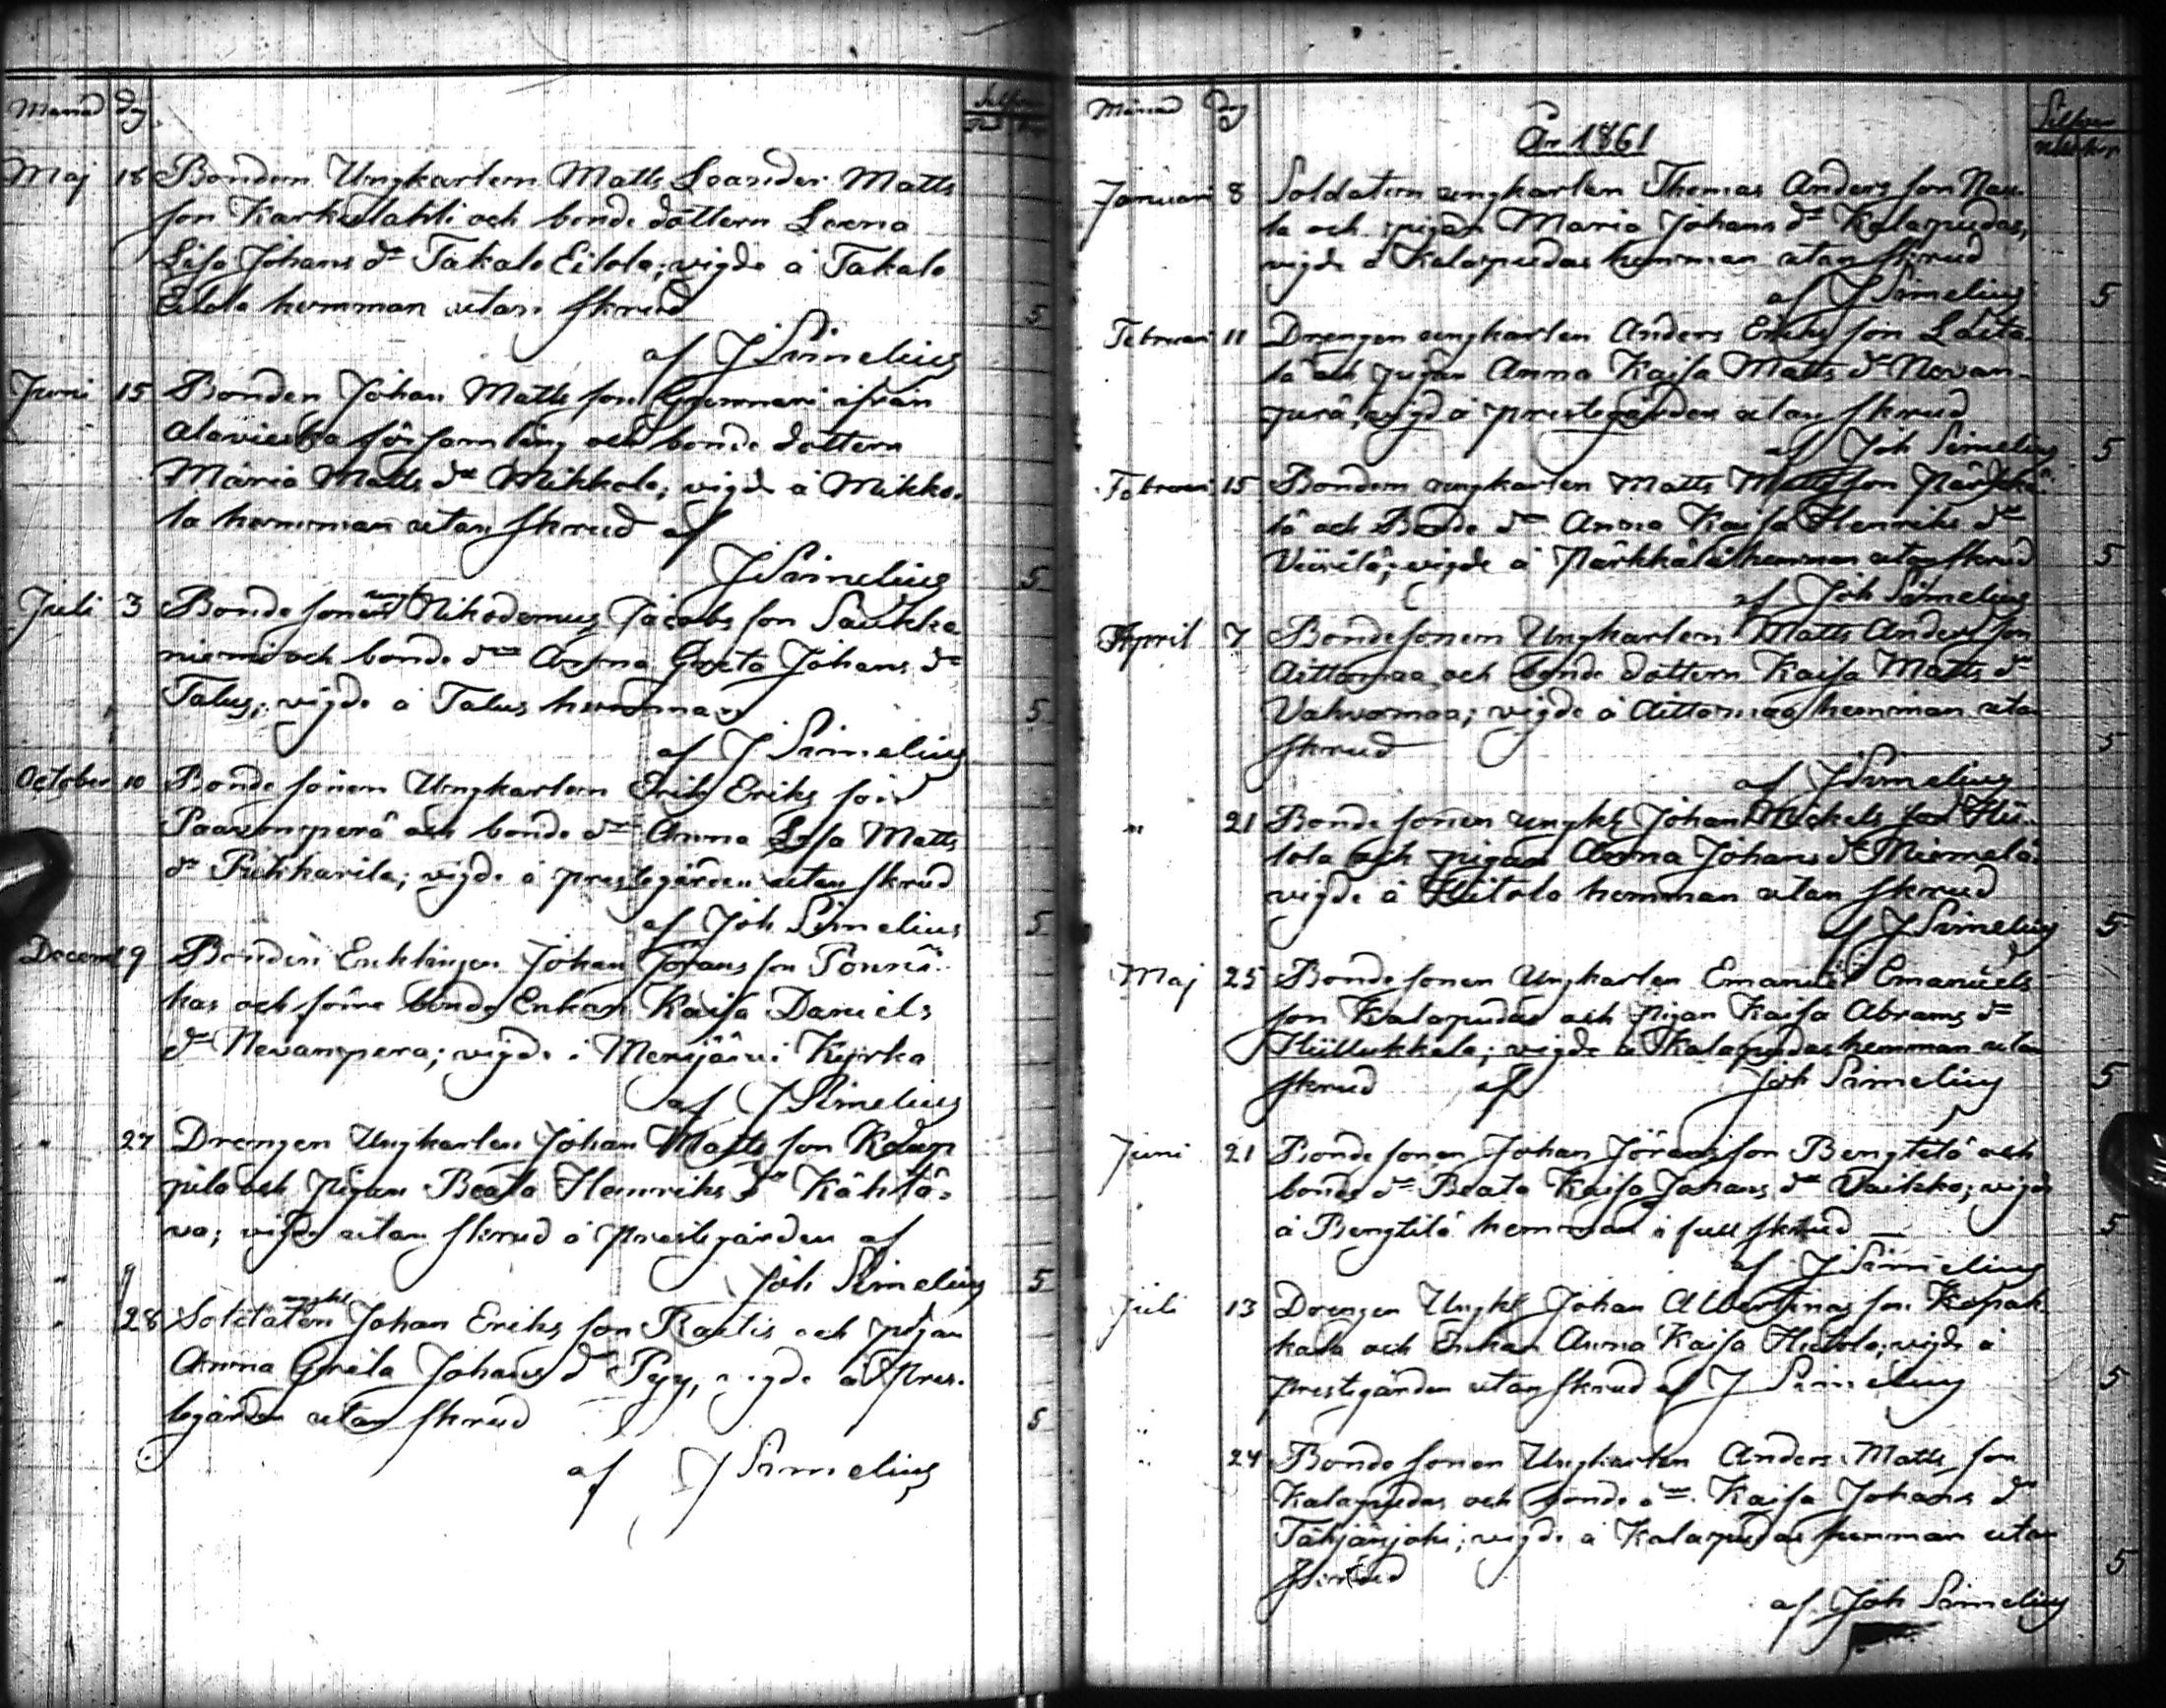 Månad Dag Silfver
Maj 18 Bonden Ungkarlen Matts Leander Matts
son Karkulahti och bonde dottern Leena
Lisa Johans dr Takalo Eilola; vigde å Takalo
Eilola hemman utan skrud 5
af J Simelius
Juni 15 Bonden Johan Matts son ifrån
Alavieska församling och bonde dottern
Maria Matts dr Mikkola; vigde å Mikko-
la hemman utan skrud af
J Simelius 5
Juli 3 Bonde sonen ungk Nikodemus Jacobs son Saukko
niemi och bonde dr Anna Greta Johans dr
Talus; vigde å Talus hemman 5
af J Simelius
October 10 Bonde sonen Ungkarlen Erik Eriks son
Paavonperä och bonde dr Anna Lisa Matts
dr Pitkkarila; vigde å prestegården utan skrud
af Joh Simelius 5
Decem 19 Bonden Enklingen Johan Jörans son
kas och förre bonde Enkan Kaisa Daniels
dr Nevanpera; vigde i Merijärvi Kyrka
af J Simelius
" 27 Drengen Ungkarlen Johan Matts son Kaup
pila och Pigan Beata Henriks dr Kähtä-
va; vigde utan skrud å prestegården af
Joh Simelius 5
" 28 Soldaten ungkl Johan Eriks son Rautis och pigan
Anna Greta Johans dr Pyy, vigde å Pres-
tgården utan skrud 5
af J Simelius
Månad dag Silfver
År 1861
Januari 8 Soldaten ungkarlen Thomas Anders son
la och pigan Maria Johans dr Kalapudas,
vigde å Kalapudas hemman utan skrud
af J Simelius 5
Februari 11 Drengen ungkarlen Anders Eriks son Laita-
la och pigan Anna Kaisa Matts dr Nevan-
perä, vigd å prestegården utan skrud
af Joh Simelius 5
Februari 15 Bonden ungkarlen Matts Matts son Pärkkä-
lä och Bonde dr Anna Kaisa Henriks dr
Viirilä; vigde å Pärkkälä hemman utan skrud 5
af Joh Simelius
April 7 Bondesonen Ungkarlen Matts Anders son
Aittamaa och bonde dottern Kaisa Matts dr
Vahvamaa; vigde å Aittamaa hemman utan
skrud 5
af J Simelius
" 21 Bonde sonen ungkl Johan Mickels son Hii-
tola och pigan Anna Johans dr Miemelä
vigde å Hiitola hemman utan skrud
af J Simelius 5
Maj 25 Bonde sonen Ungkarlen Emanuel Emanuels
son Kalapudas och pigan Kaisa Abrams dr
Hiillukkala; vigde å Kalapudas hemman utan
skrud af Joh Simelius 5
Juni 21 Bonde sonen Johan Jörans son Bengtilä och
bonde dr Beata Kaisa Johans dr Vaikko; vigde
å Bengtilä hemman i full skrud 5
af J Simelius
Juli 13 Drengen Ungkl Johan Albertinas son Kopak
kala och Enkan Anna Kaisa Hiitola; vigde å
prestegården utan skrud af J Simelius 5
" 24 Bonde sonen Ungkarlen Anders Matts son
Kalapudas och bonde dr Kaisa Johans dr
Tähjänjoki; vigde å Kalapudas hemman utan
skrud 5
af Joh Simelius